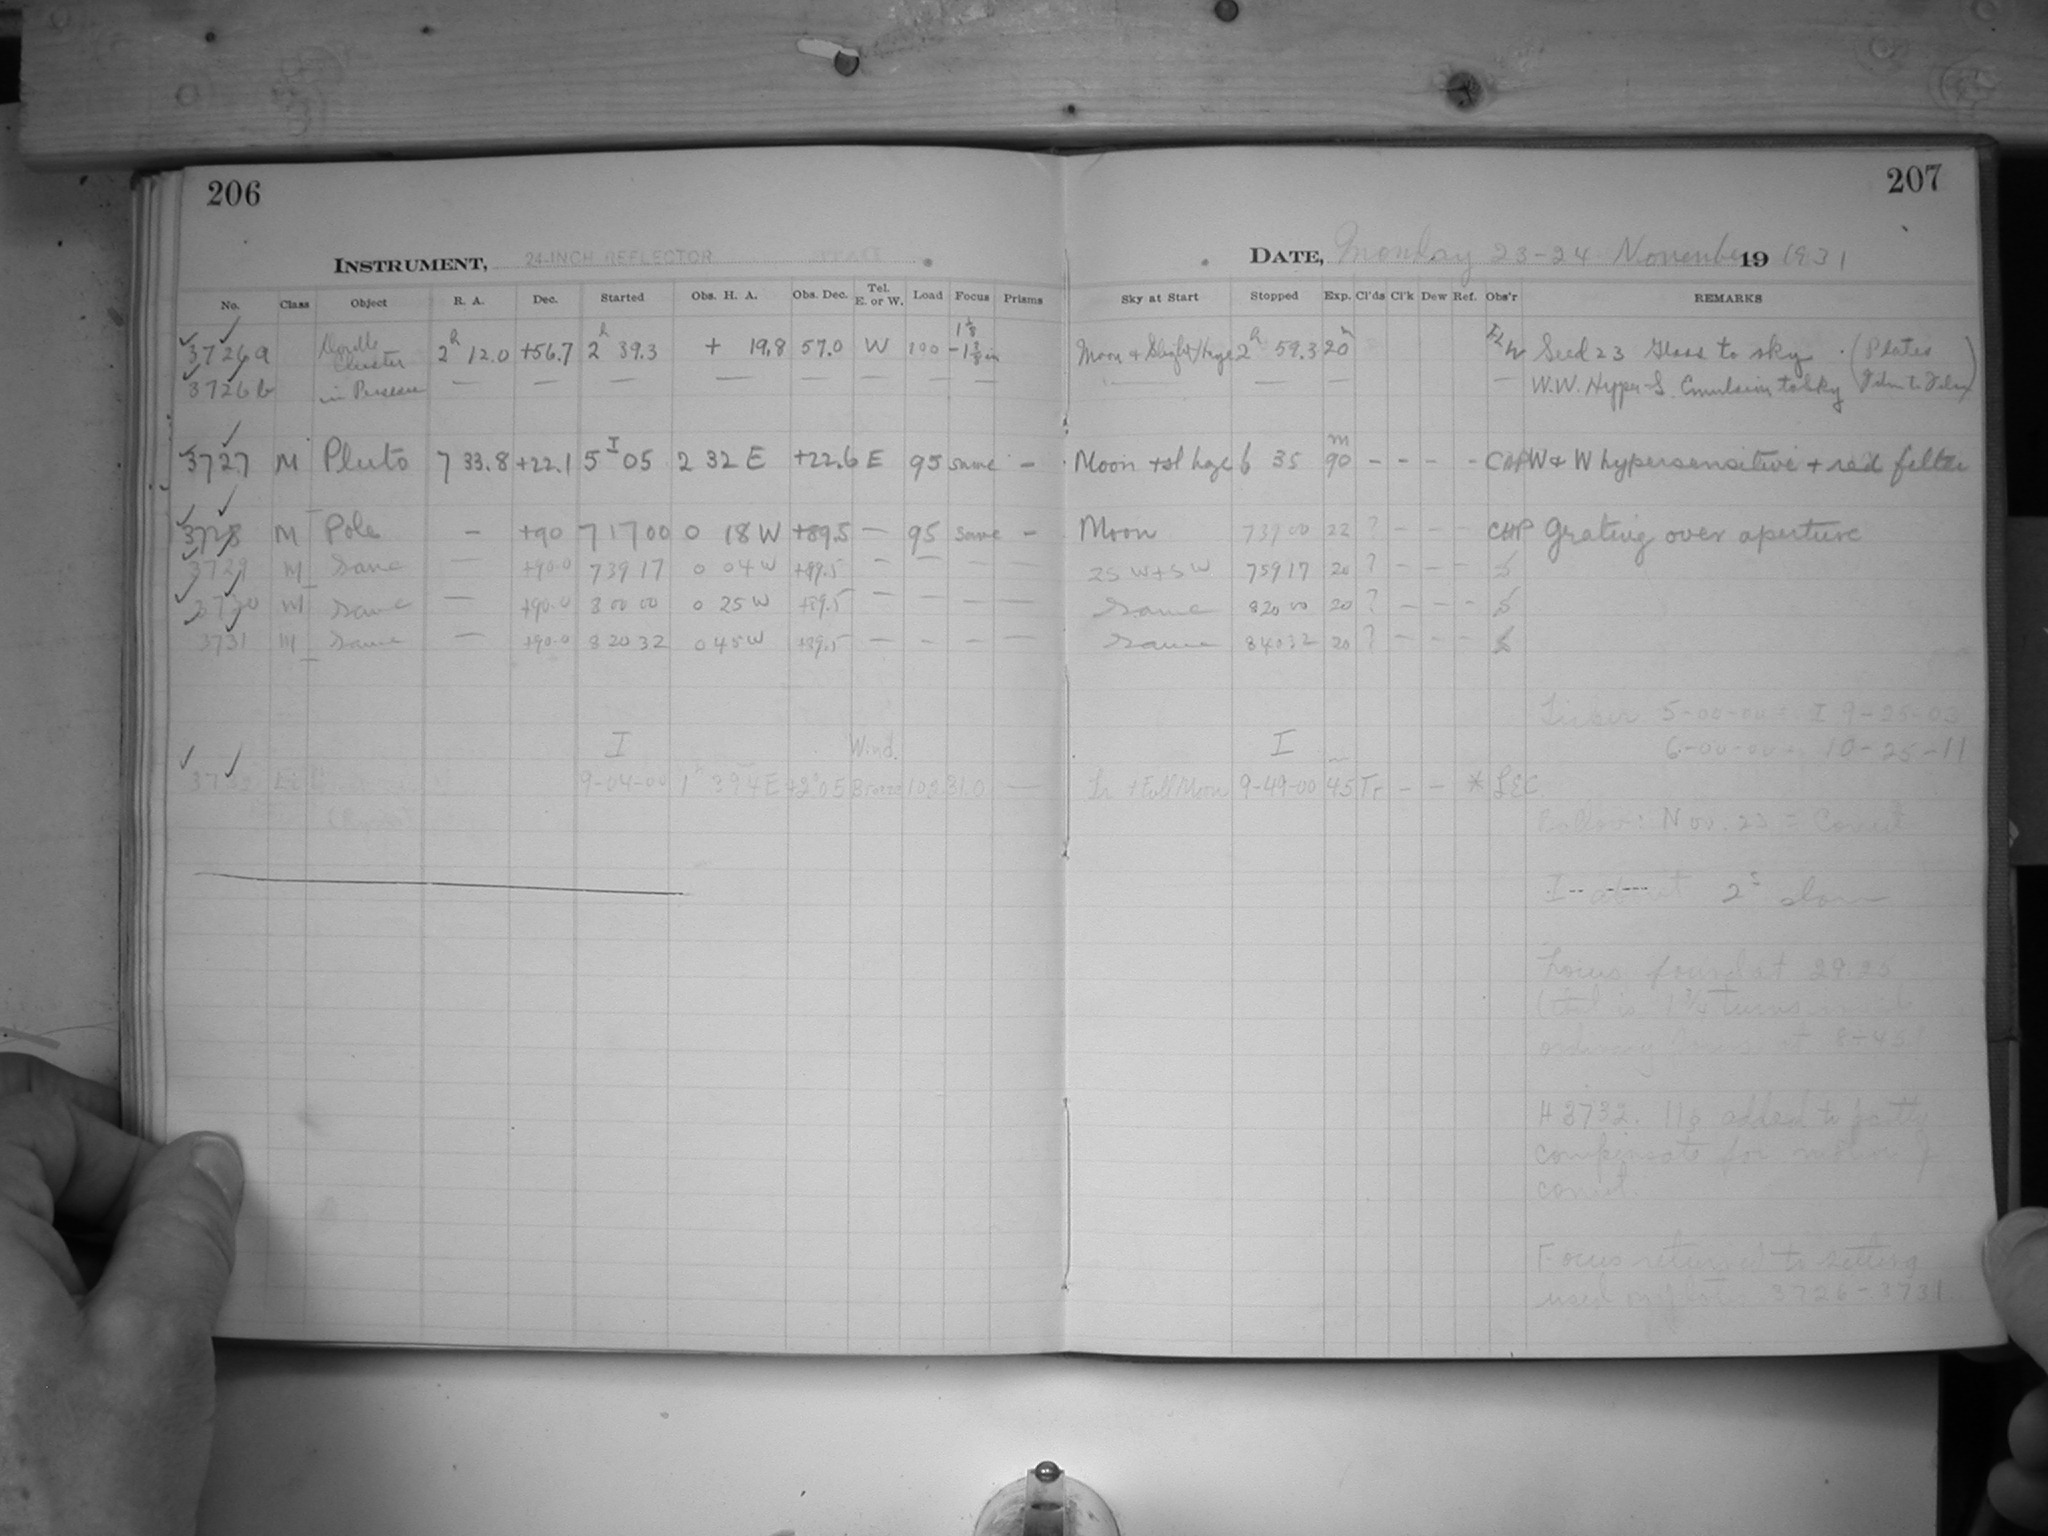 206
207
INSTRUMENT, 24-INCH REFLECTOR
DATE, Monday 23-24 November 19 1931
No. Class Object R. A. Dec. Started Obs. H. A. Obs. Dec. Tel. E. or W. Load Focus Prisms Sky at Start Stopped Exp. Cl'ds Cl'k Dew Ref. Obs'r REMARKS
3726a Double Cluster 2h 12.0 +56.7 2h 39.3 + 19.8 57.0 W 100 Moon + Slight Haze 2h 59.3 20 Seed 23 Glass to sky (Plates
3726b in Perseus — — — — — — — — — — — — W.W. Hyper-S. Emulsion to Sky Film to Film)
3727 M Pluto 7 33.8 +22.1 5 I 05 2 32 E +22.6 E 95 same – Moon + sl haze 6 35 90m – – – – CHP W & W hypersensitive + red filter
3728 M Pole – +90 7 17 00 0 18 W +89.5 — 95 same – Moon 7 39 00 22 ? – – – CHP Grating over aperture
3729 M Same — +90.0 7 39 17 0 04 W +89.5 — — — — 25 W + S W 7 59 17 20 ? – – –
3730 M Same — +90.0 8 00 00 0 25 W +89.5 — — — — Same 8 20 00 20 ? – – –
3731 M Same — +90.0 8 20 32 0 45 W +89.5 — — — — Same 8 40 32 20 ? – – –
5-00-00 = I 9-25-03
6-00-00 = 10-25-11
I Wind. I
3732 9-04-00 1h 39.4 E +2°05 Breeze 102 31.0 — + Full Moon 9-49-00 45 Tr – – * LEC
Nov. 23 = Comet
I about 2s slow
Focus found at 29.25
(that is 1 3/4 turns inside
ordinary focus at 8-45)
# 3732. added to partly
compensate for motion of
comet.
Focus returned to setting
used on plates 3726-3731